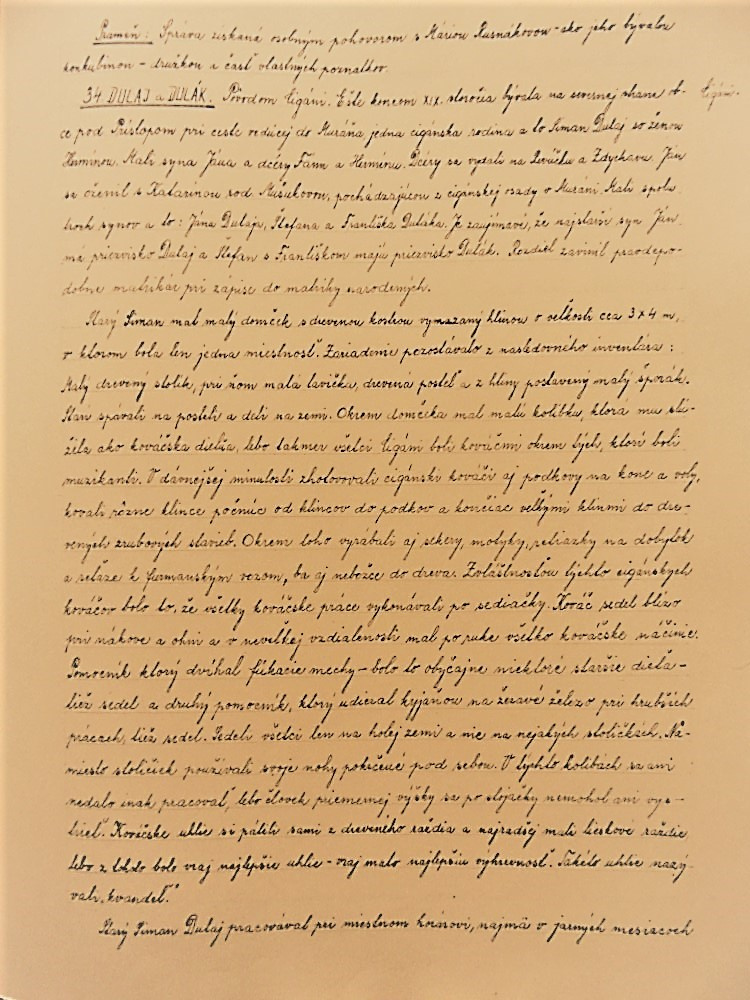 Prameň: Správa získaná osobným pohovorom s Máriou Rusnákovou - ako jeho bývalou
konkubínou - družkou a časť vlastných poznatkov.
34. DULAJ a DULÁK. Pôvodom Cigáni. Ešte koncom XIX. storočia bývala na severnej strane ob-
Cigáni.
ce pod Príslopom pri ceste vedúcej do Muráňa jedna cigánska rodina a to Šiman Dulaj so ženou
Hermínou. Mali syna Jána a dcéry Fánu a Hermínu. Dcéry sa vydali na Revúčku a Zdychavu. Ján
sa oženil s Katarínou rod. Mišukovou, pochádzajúcou z cigánskej osady v Muráni. Mali spolu
troch synov a to: Jána Dulaja, Štefana a Františka Duláka. Je zaujímavé, že najstarší syn Ján
má priezvisko Dulaj a Štefan s Františkom majú priezvisko Dulák. Rozdiel zavinil pravdepo-
dobne matrikár pri zápise do matriky narodených.
Starý Šiman mal malý domček s drevenou kostrou vymazaný hlinou o veľkosti cca 3x4 m,
v ktorom bola len jedna miestnosť. Zariadenie pozostávalo z nasledovného inventára:
Malý drevený stolík, pri ňom malá lavička, drevená posteľ a z hliny postavený malý šporák.
Starí spávali na posteli a deti na zemi. Okrem domčeka mal malú kolibku, ktorá mu slú-
žila ako kováčska dielňa, lebo takmer všetci Cigáni boli kováčmi okrem tých, ktorí boli
muzikanti. V dávnejšej minulosti zhotovovali cigánski kováči aj podkovy na kone a voly,
kovali rôzne klince počnúc od klincov do podkov a končiac veľkými klinmi do dre-
vených zrubových stavieb. Okrem toho vyrábali aj sekery, motyky, retiazky na dobytok
a reťaze k furmanským vozom, ba aj nebožce do dreva. Zvláštnosťou týchto cigánskych
kováčov bolo to, že všetky kováčske práce vykonávali po sediačky. Kováč sedel blízo
pri nákove a ohni a v neveľkej vzdialenosti mal po ruke všetko kováčske náčinie.
Pomocník ktorý dvíhal fúkacie mechy - bolo to obyčajne niektoré staršie dieťa -
tiež sedel a druhý pomocník, ktorý udieral kyjaňou na žeravé železo pri hrubších
prácach, tiež sedel. Sedeli všetci len na holej zemi a nie na nejakých stoličkách. Na-
miesto stoličiek používali svoje nohy pokrčené pod sebou. V týchto kolibách sa ani
nedalo inak pracovať, lebo človek priemernej výšky sa po stojačky nemohol ani vys-
trieť. Kováčske uhlie si pálili sami z dreveného raždia a najradšej mali lieskové raždie
lebo z tohto bolo vraj najlepšie uhlie - vraj malo najlepšiu výhrevnosť. Takéto uhlie nazý-
vali „kvandel."
Starý Šiman Dulaj pracovával pri miestnom horárovi, najmä v jarných mesiacoch